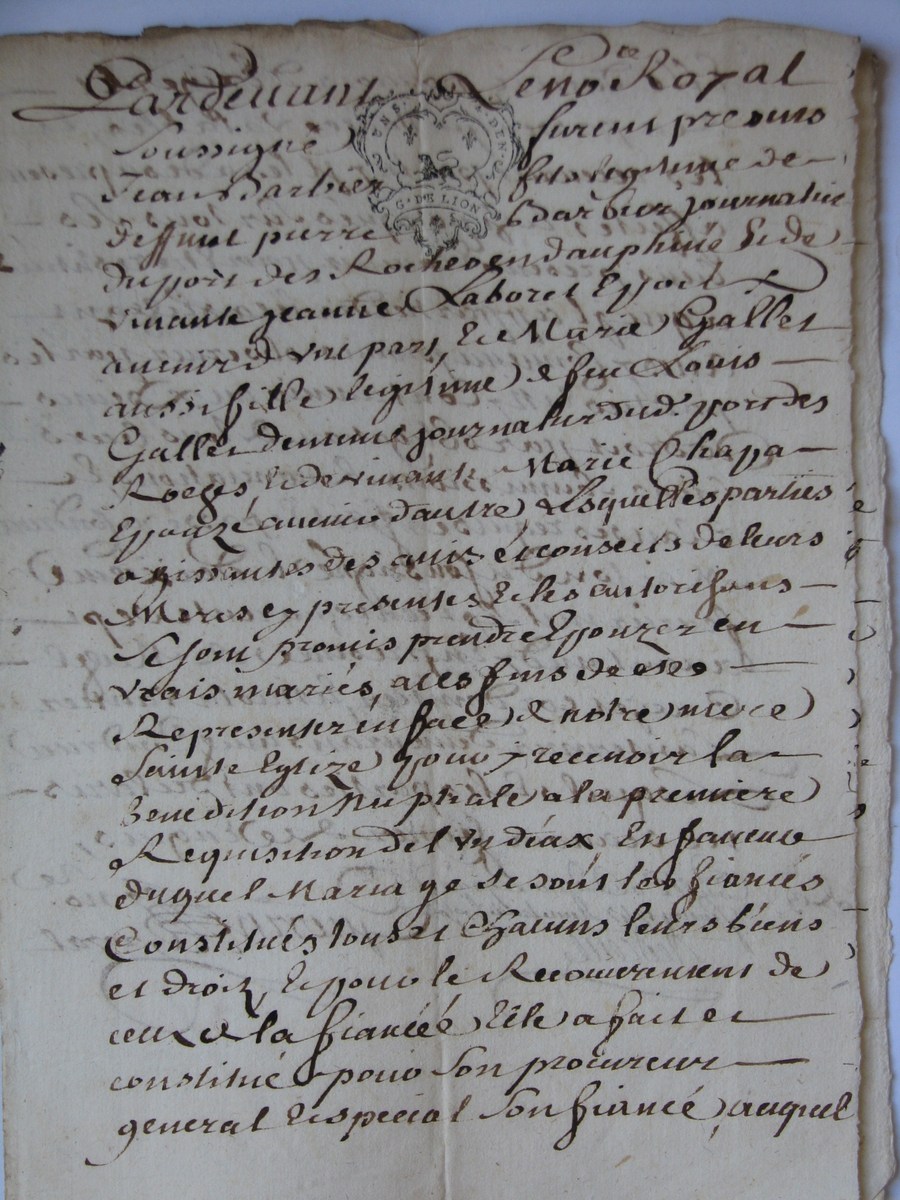 Pardevant Le no.re Royal
Soussigné furent presens
Jean Barbier fils legitime de
deffunt pierre Barbier journalier
du port des Roches en dauphiné Et de
vivante jeanne Laboret Epoux
avenir d'une part, Et Marie Gallet
aussi fille legitime de feu Louis
Gallet de meme journalier dud. port des
Roches, Et de vivante Marie Chapa
Epouze avenir d'autre, Lesquelles parties
agissantes des avis et conseils de leurs
Meres cy presentes Et les autorisans
se sont promis prendre Epouzer en
vrais mariés, a ces fins de se
Representer en face de notre mere
Sainte Eglize pour y recevoir la
Benedition Nuptiale a la premiere
Requisition de l'un deux En faveur
duquel Mariage se sont les fiancés
Constitués tous et Chacuns leurs biens
et droits, Et pour le Recouvrement de
ceux de la fiancée Elle a fait et
constitué pour son procureur
general Et special son fiancé, auquel
G. DE LION